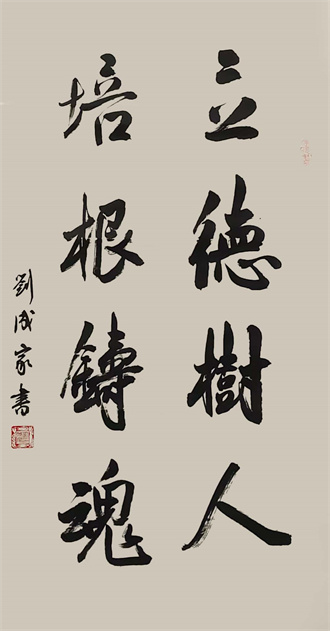 立德樹人
培根鑄魂
劉成家書